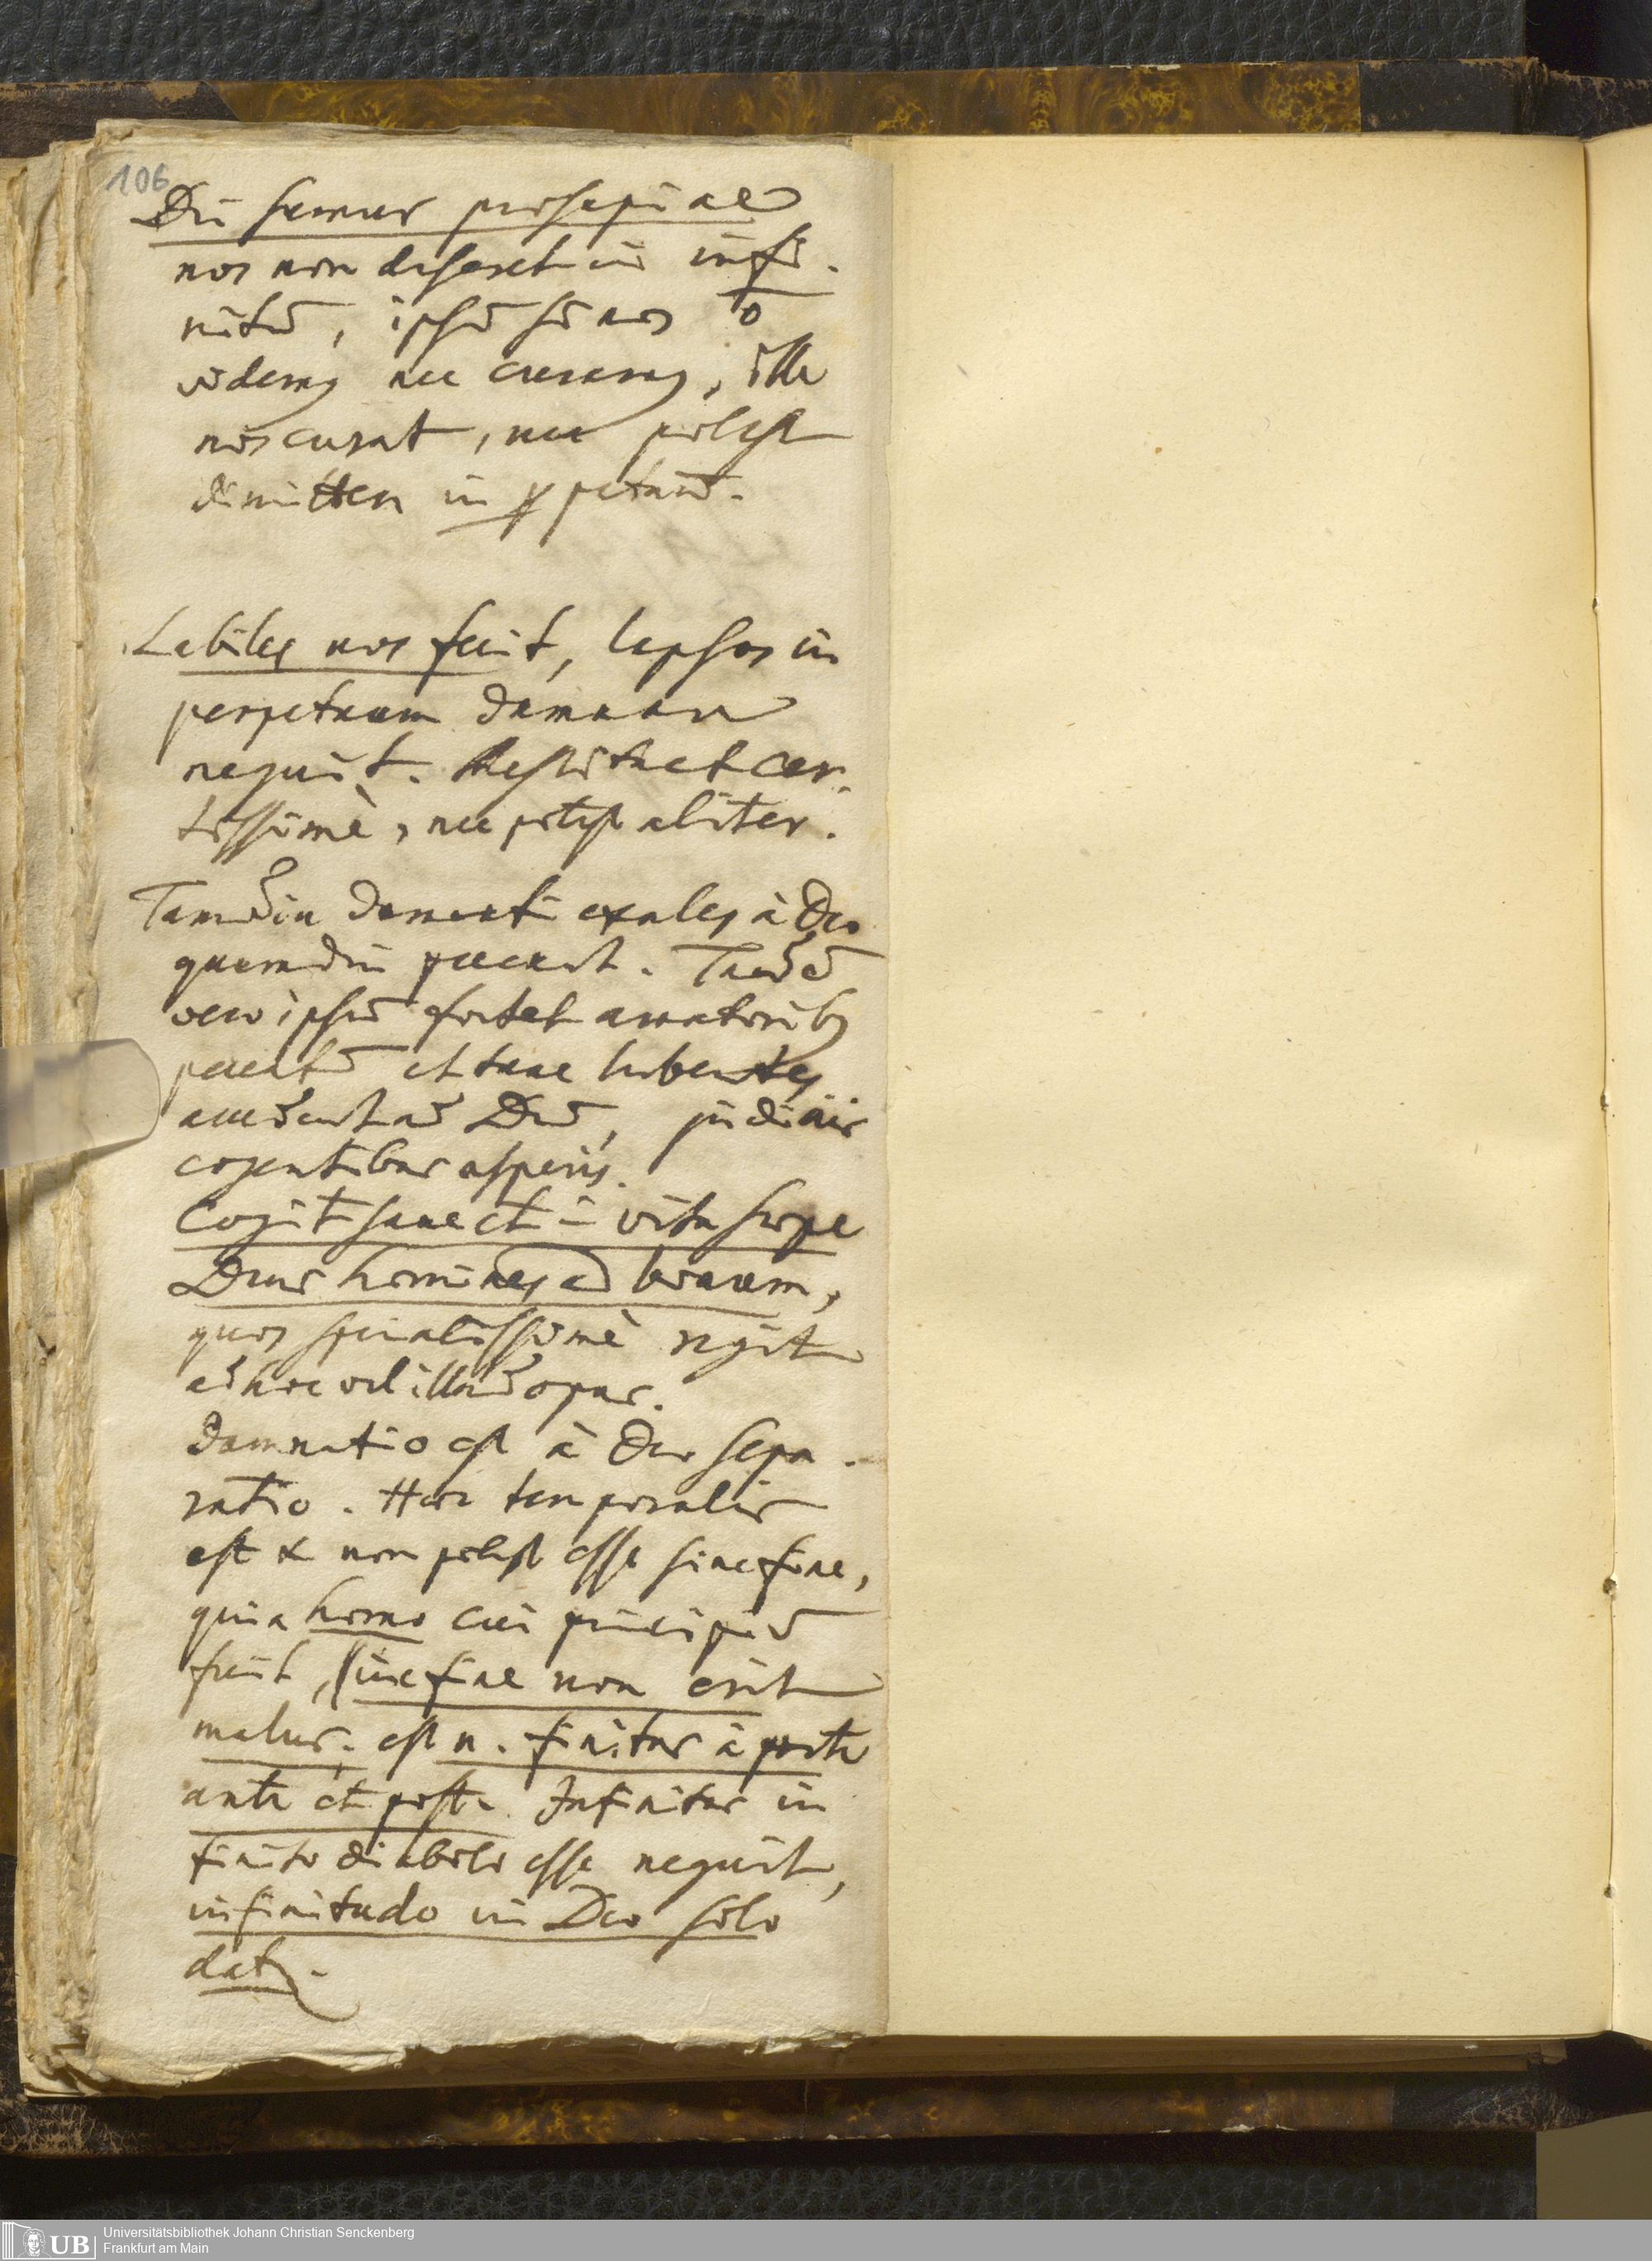 106
Dei sumus prosapiae
nos non deseret in infi-
nitū, ipsū si nos ō
videmus nec curamus, ille
nos curat, nec potest
dimittere in perpetuū.
Labiles nos fecit, lapsos in
perpetuum damnare
nequit. Restituet cer-
tissimè, nec potest aliter.
Tamdiu damnati exules à Deo
quamdiu peccant. Tandē
vero ipsū foetet amatoribus
peccatū et tunc lubentes
accedunt ad Deū, judiciis
cogentibus asperis.
Cogit sane et in vita saepe
Deus homines ad bonum,
quos specialissimè regit
ad hoc vel illud opus.
Damnatio est à Deo sepa-
ratio. Haec temporalis
est & non potest esse sine fine,
quia homo cui principiū
fuit, sine fine non erit
malus. est n. finitus à parte
ante et post. Infinitus in
finito diabolo esse nequit,
infinitudo in Deo solo
datur.
UB
Universitätsbibliothek Johann Christian Senckenberg
Frankfurt am Main